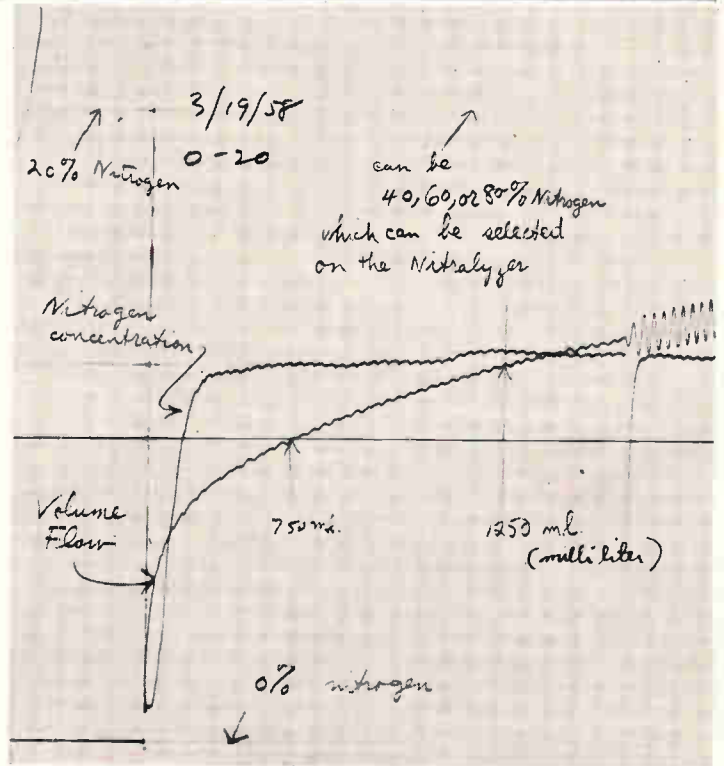 3/19/58
20% Nitrogen
0-20
can be
40, 60, or 80% Nitrogen
which can be selected
on the Nitralyzer
Nitrogen
concentration
Volume
Flow
750 ml.
1250 ml.
(milliliter)
0% nitrogen